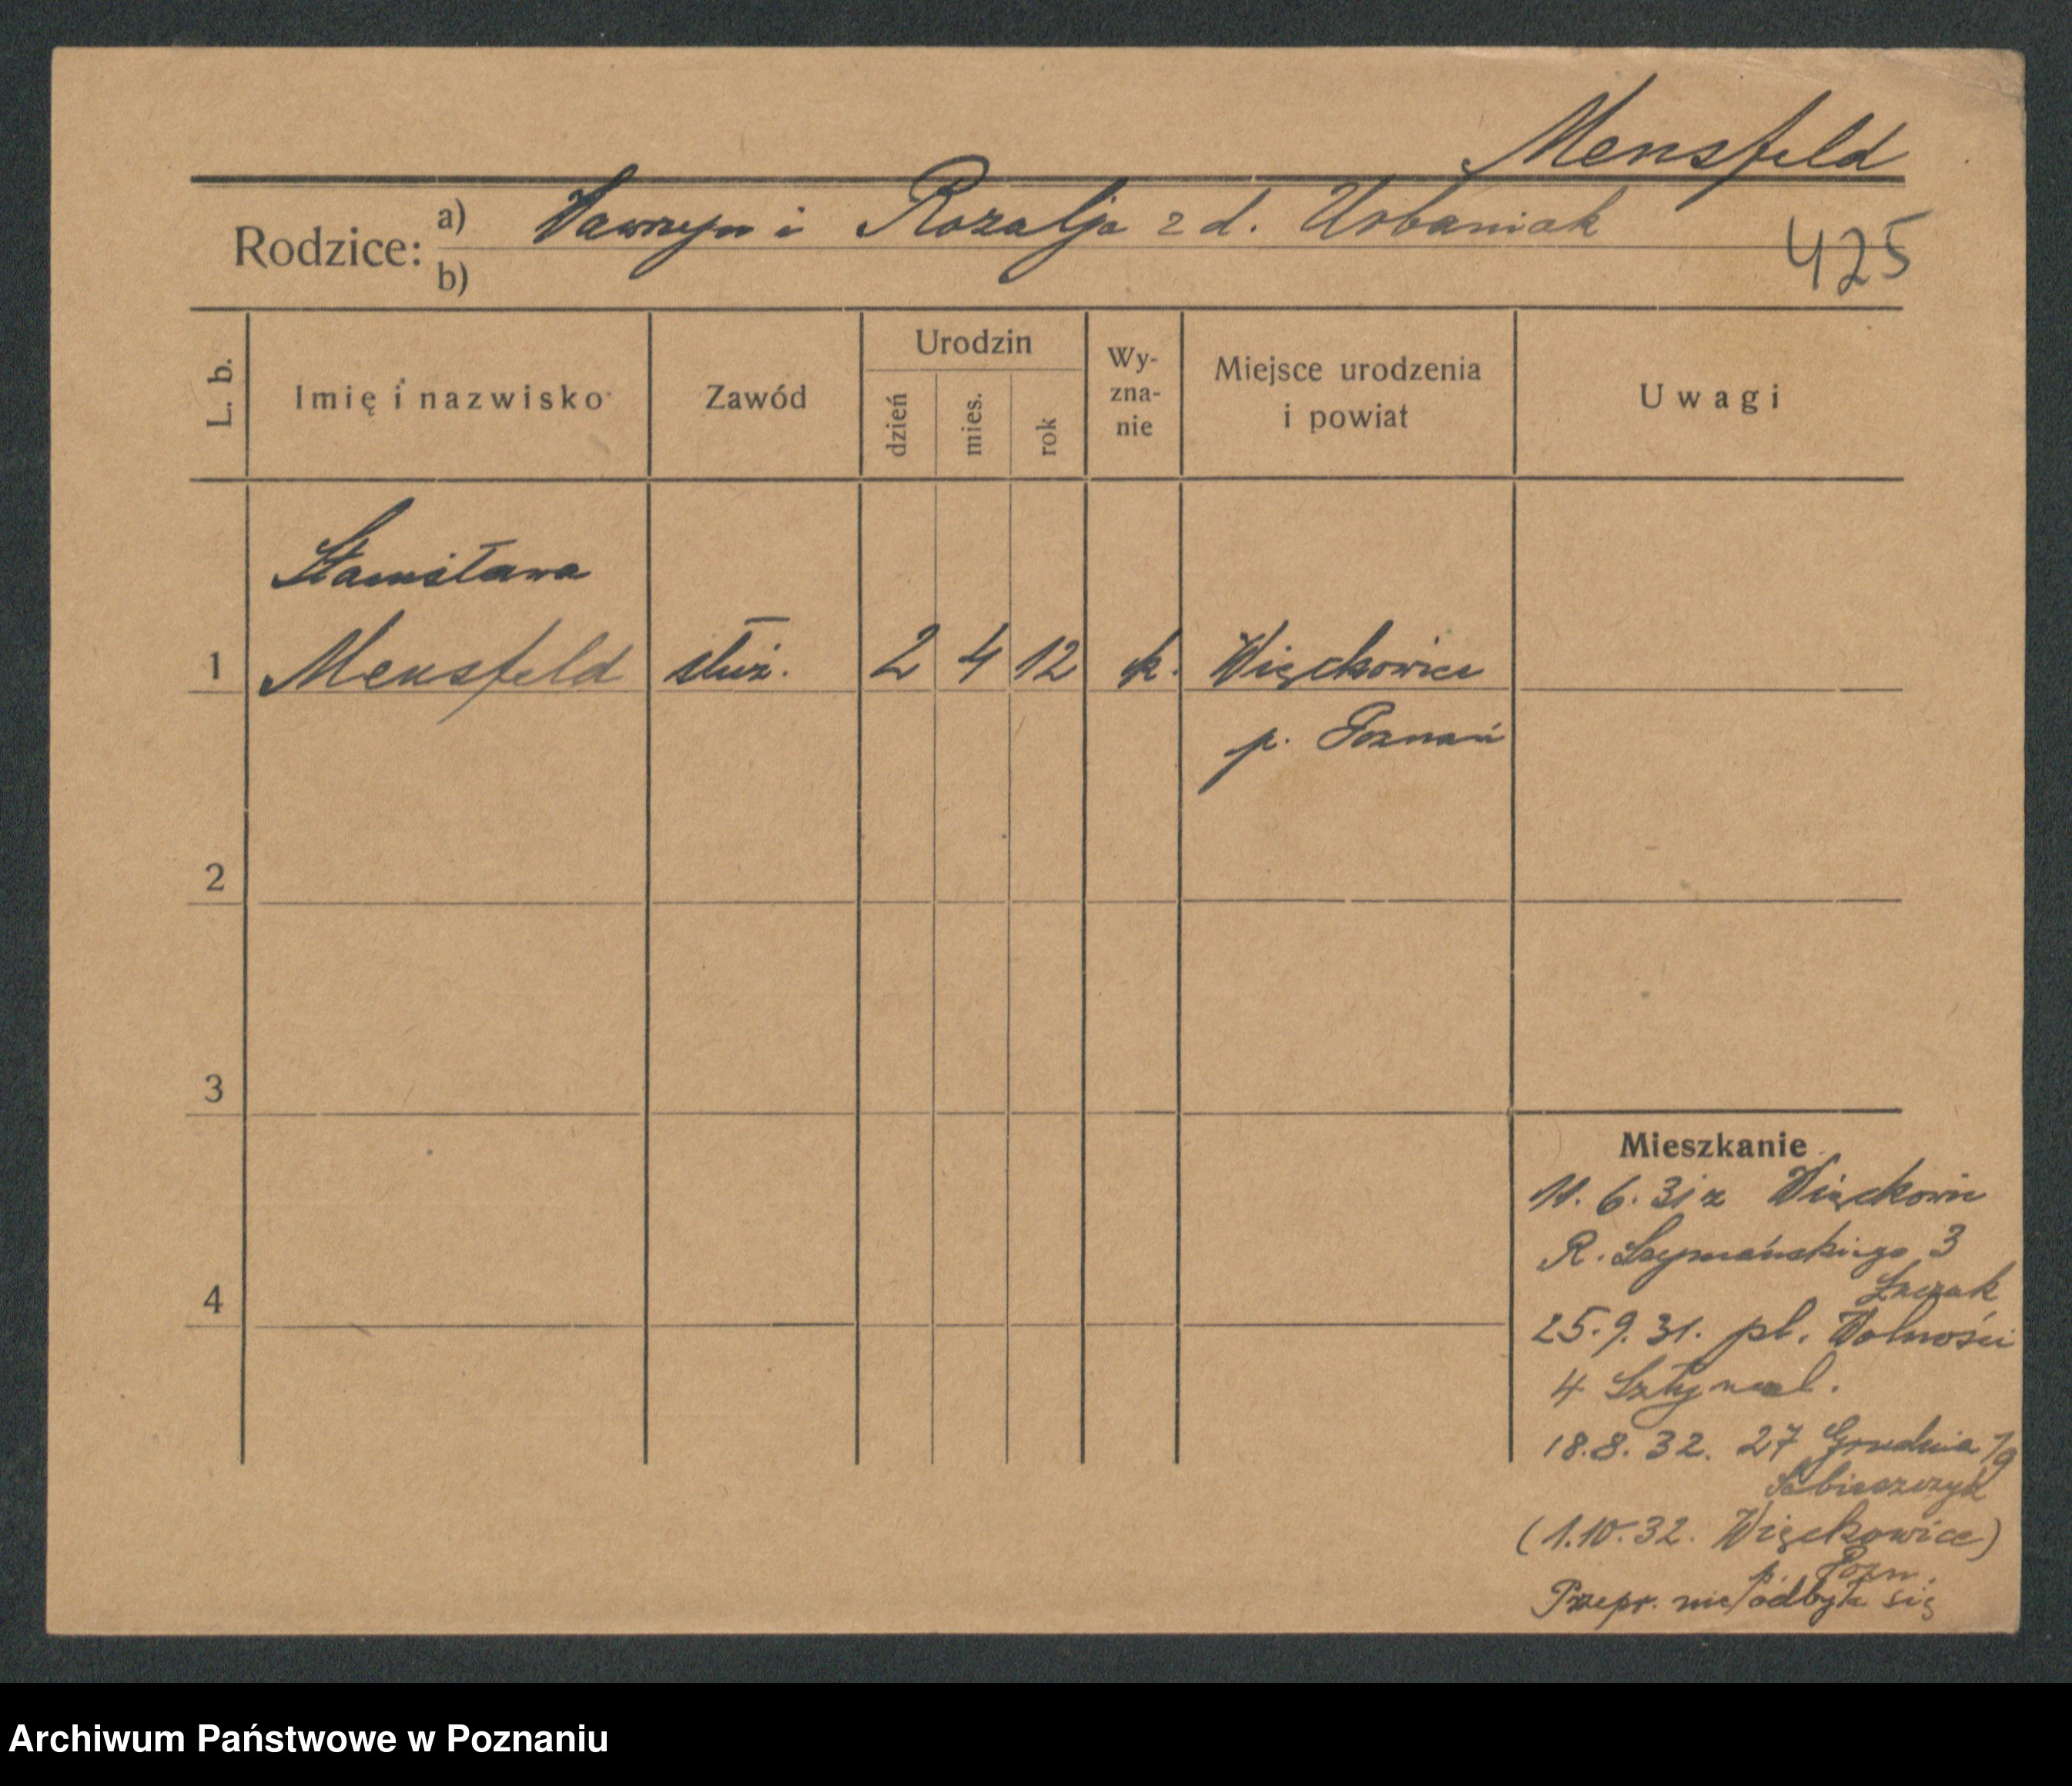 Mensfeld
Rodzice: a) Wawrzyn i Rozalja z d. Urbaniak
425
b)
L. b.
Imię i nazwisko
Zawód
Urodzin
dzień
mies.
rok
Wy-
zna-
nie
Miejsce urodzenia
i powiat
Uwagi
Stanisława
1 Mensfeld służ. 2 4 12 k. Więckowice
p. Poznań
2
3
4
Mieszkanie
11. 6. 31 z Więckowic
R. Szymańskiego 3
25. 9. 31. pl. Wolności
4
18. 8. 32. 27 Grudnia 19
Sobieszczyk
(1.10.32. Więckowice)
p. Pozn.
Przepr. nie odbyła się
Archiwum Państwowe w Poznaniu